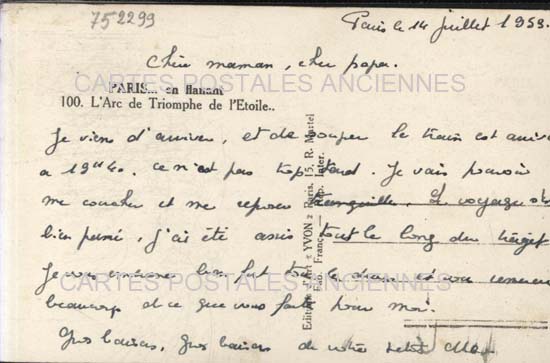 752299
Paris le 14 juillet 1953.
Chère maman, cher papa.
CARTES POSTALES ANCIENNES
PARIS... en flanant
100. L'Arc de Triomphe de l'Etoile..
Je viens d'arriver, et de souper le train est arrivé
a 19h40. ce n'est pas trop tard. Je vais pouvoir
me coucher et me reposer tranquille. Le voyage s'est
bien passé, j'ai été assis tout le long du trajet
Je vous embrasse bien fort tous les deux et vous remercie
CARTES POSTALES ANCIENNES
beaucoup de ce que vous faites pour moi.
Gros baisers, Gros baisers de votre petit
Editions d'Art « YVON » Paris, 15, R. Martel
Fab. Française - Inter.